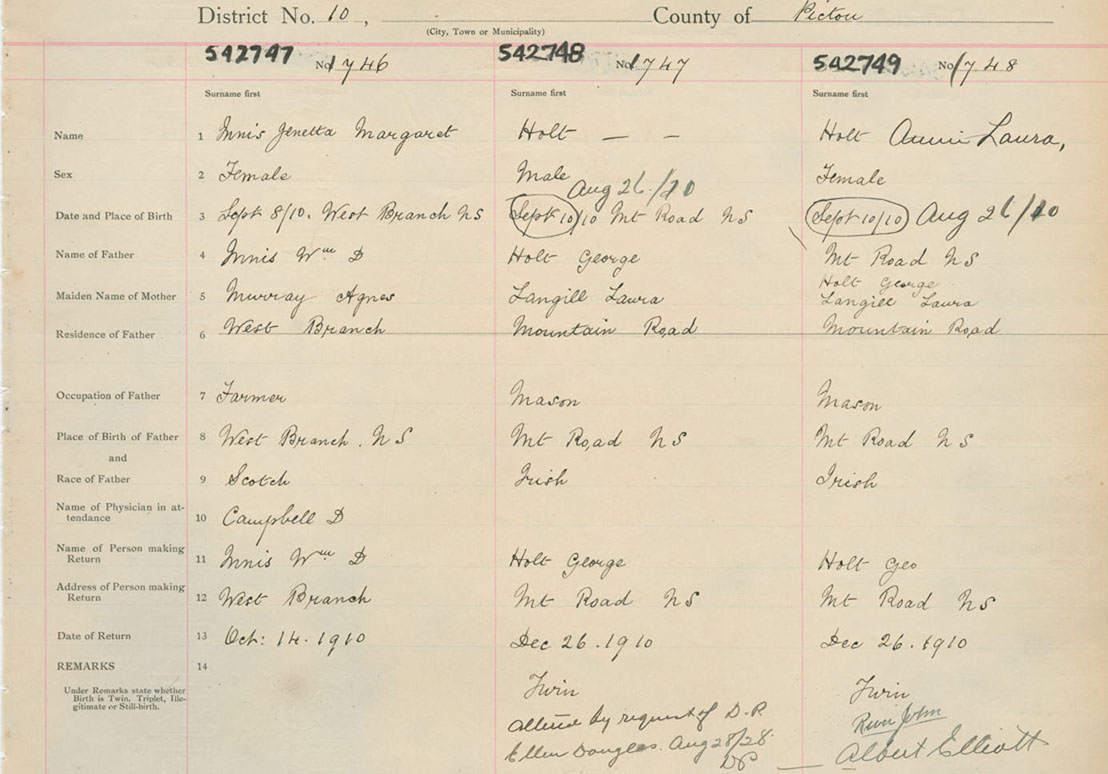 District No. 10, County of Pictou
(City, Town or Municipality)
542747 No 1746 542748 No 1747 542749 No 1748
Surname first Surname first Surname first
Name 1 Innis Jenetta Margaret Holt — — Holt Annie Laura,
Sex 2 Female Male Female
Aug 26/10
Date and Place of Birth 3 Sept 8/10. West Branch NS Sept 10/10 Mt Road NS Sept 10/10 Aug 26/10
Name of Father 4 Innis Wm D Holt George Mt Road NS
Holt George
Maiden Name of Mother 5 Murray Agnes Langill Laura Langill Laura
Residence of Father 6 West Branch Mountain Road Mountain Road
Occupation of Father 7 Farmer Mason Mason
Place of Birth of Father 8 West Branch. NS Mt Road NS Mt Road NS
and
Race of Father 9 Scotch Irish Irish
Name of Physician in at-
tendance 10 Campbell D
Name of Person making
Return 11 Innis Wm D Holt George Holt Geo
Address of Person making
Return 12 West Branch Mt Road NS Mt Road NS
Date of Return 13 Oct: 14. 1910 Dec 26. 1910 Dec 26. 1910
REMARKS 14
Under Remarks state whether
Birth is Twin, Triplet, Ille-
gitimate or Still-birth.
Twin Twin
by request of D.R. John
Ellen Douglas. Aug 28/28. Albert Elliott